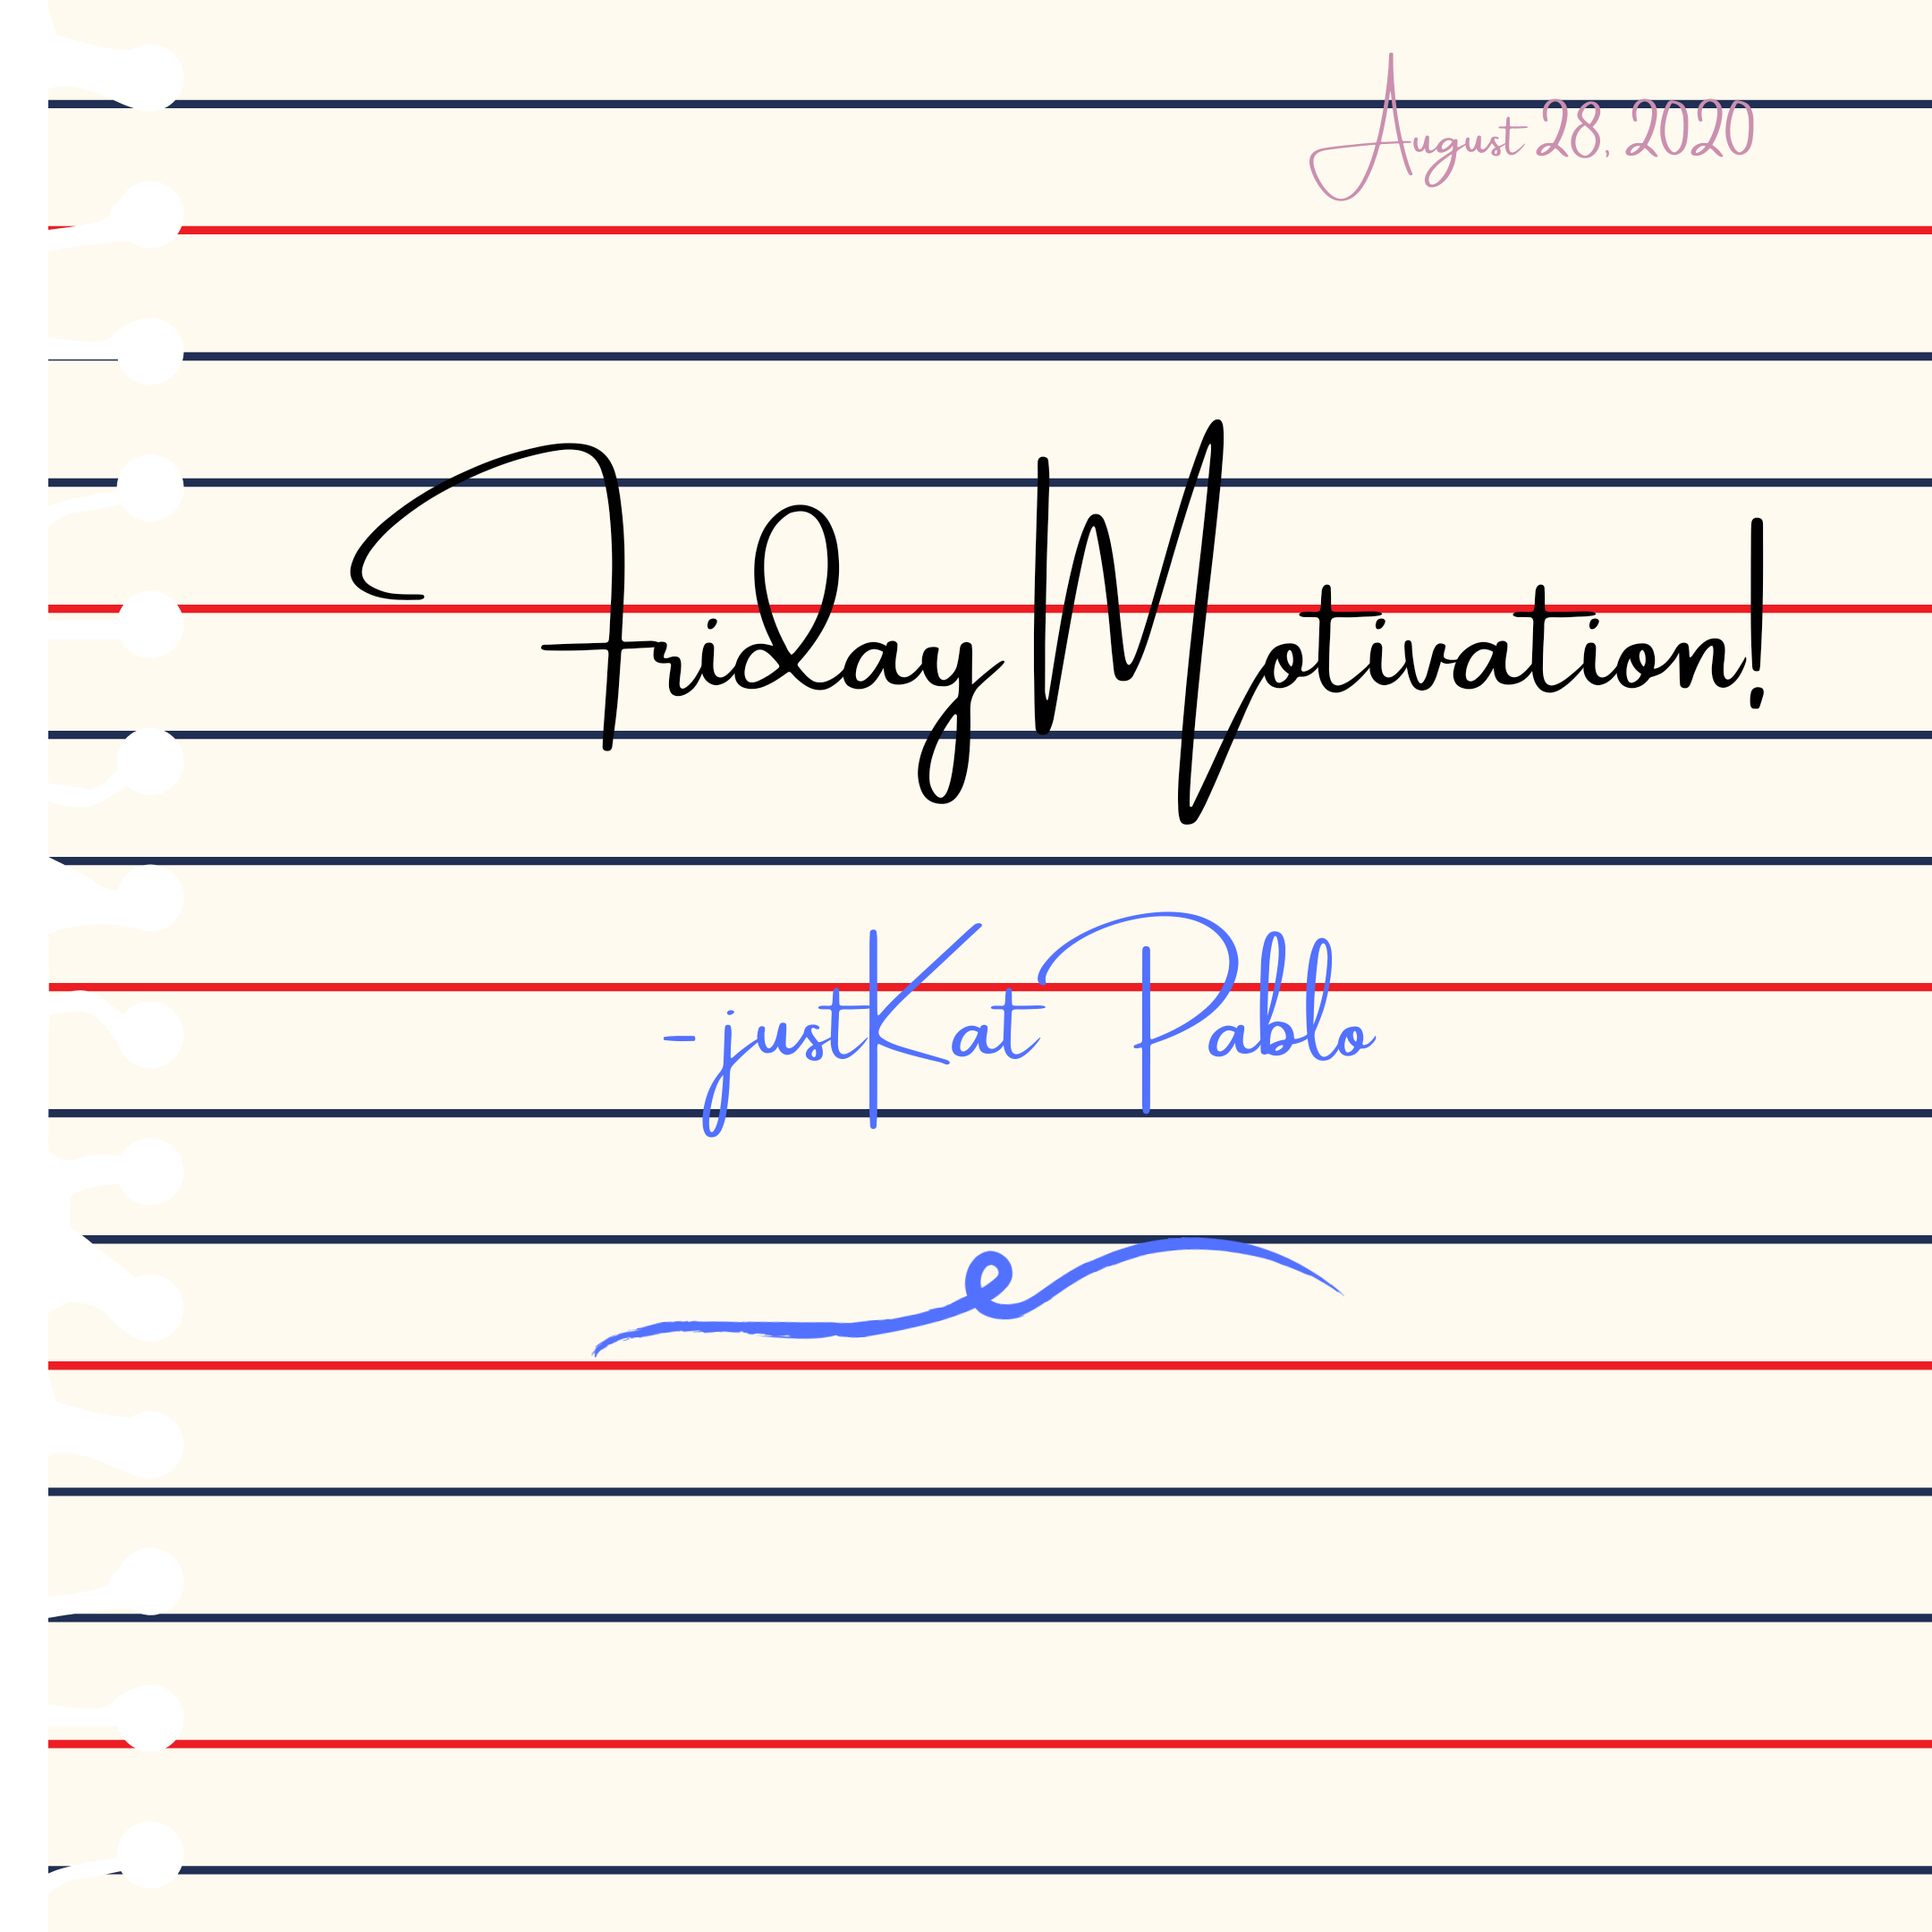 August 28, 2020
Friday Motivation!
-justKat Pablo